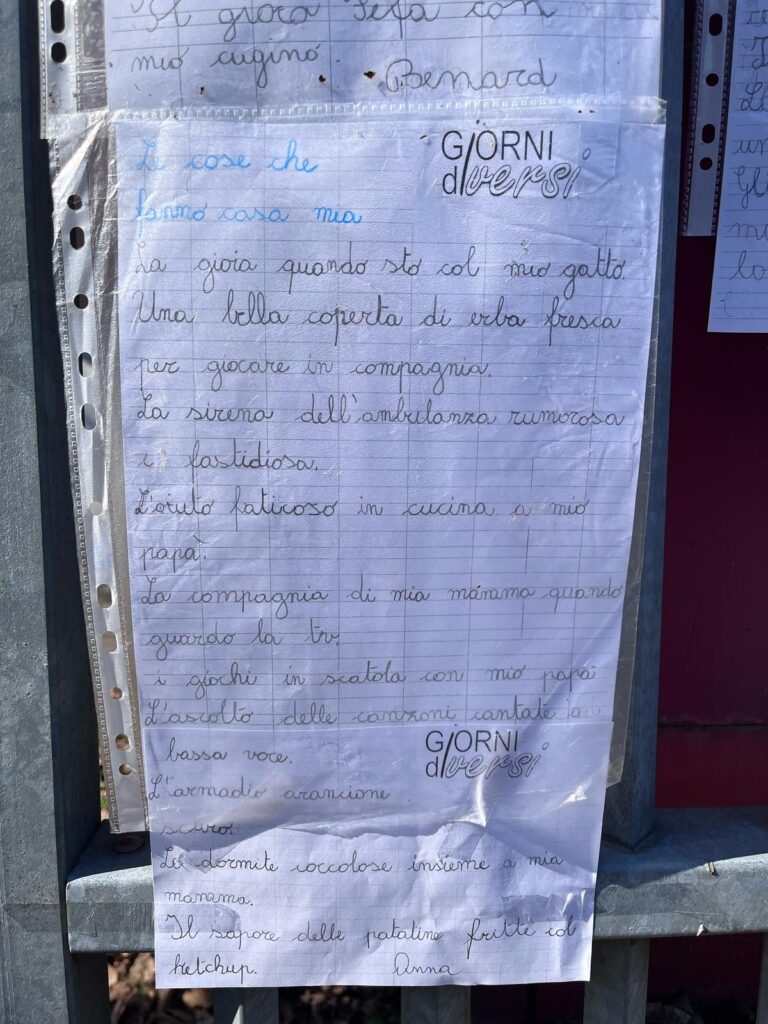 Il gioco Fefa con
mio cugino.
Benard
GIORNI
dIversi
Le cose che
fanno casa mia
La gioia quando sto col mio gatto.
Una bella coperta di erba fresca
per giocare in compagnia.
La sirena dell'ambulanza rumorosa
e fastidiosa.
L'aiuto faticoso in cucina a mio
papà.
La compagnia di mia mamma quando
guardo la tv.
i giochi in scatola con mio papà
L'ascolto delle canzoni cantate a
bassa voce.
GIORNI
dIversi
L'armadio arancione
scuro.
Le dormite coccolose insieme a mia
mamma.
Il sapore delle patatine fritte col
ketchup.
Anna